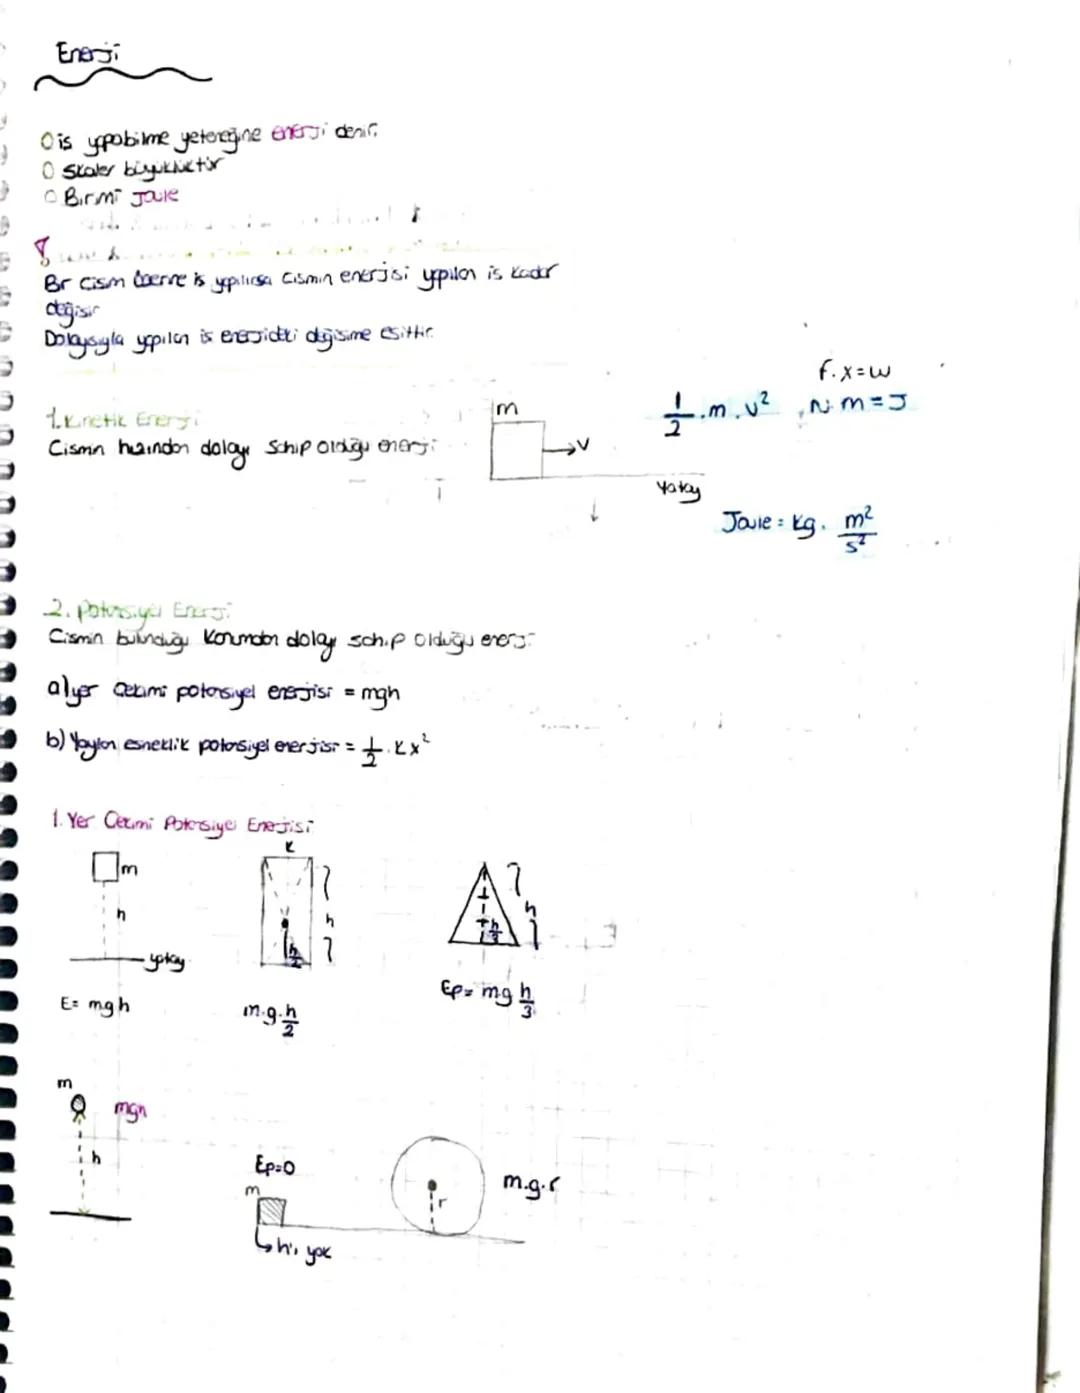 Enerji
O is yapabilme yeteneğine enerji denir.
O Skaler büyüklüktür
O Birimi Joule
Bir cisim üzerine is yapılırsa cismin enerjisi yapılan is kadar
değisir
Dolayısıyla yapılan is enerjideki değisime esittir.
F.x=W
1/2 .m.v² , N.m=J
1. Kinetik Enerji
Cismin hızından dolayı sahip olduğu enerji
m
v
Yatay
Joule = kg. m²/s²
2. Potansiyel Enerji
Cismin bulunduğu konumdan dolayı sahip olduğu enerji
a) yer çekimi potansiyel enerjisi = mgh
b) Yayların esneklik potansiyel enerjisi = 1/2 . kx²
1. Yer Çekimi Potansiyel Enerjisi
m
h
yatay
E= mgh
K
h
h/2
m.g.h/2
h
h/3
Ep= mg h/3
m
mgh
h
Ep=0
m
h'ı yok
r
m.g.r